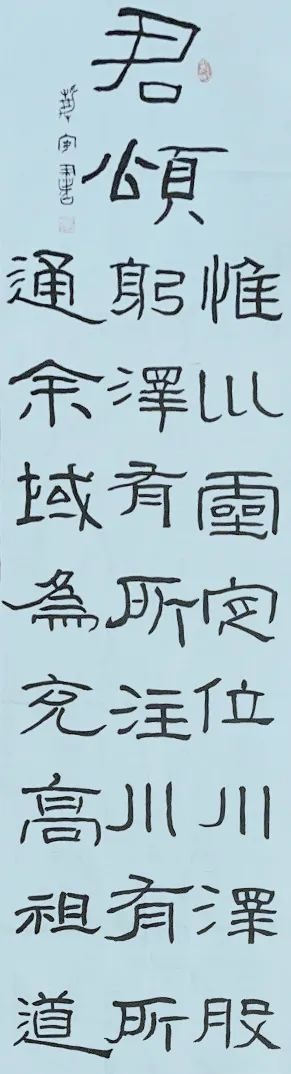 君頌
惟巛靈定位川澤股
躬澤有所注川有所
通余域為充高祖道
書